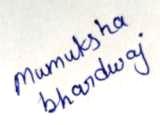 Mumuksha
bhardwaj